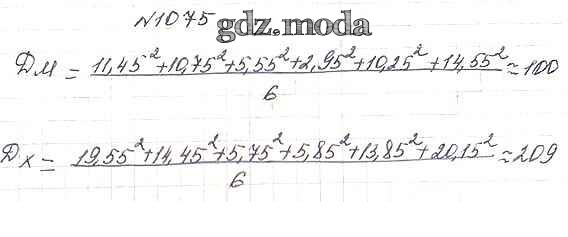 N1075 gdz.moda
Dм = 11,45²+10,75²+5,55²+2,95²+10,25²+14,55² ≈ 100
6
Dx = 19,55²+14,45²+5,75²+5,85²+13,85²+20,15² ≈ 209
6